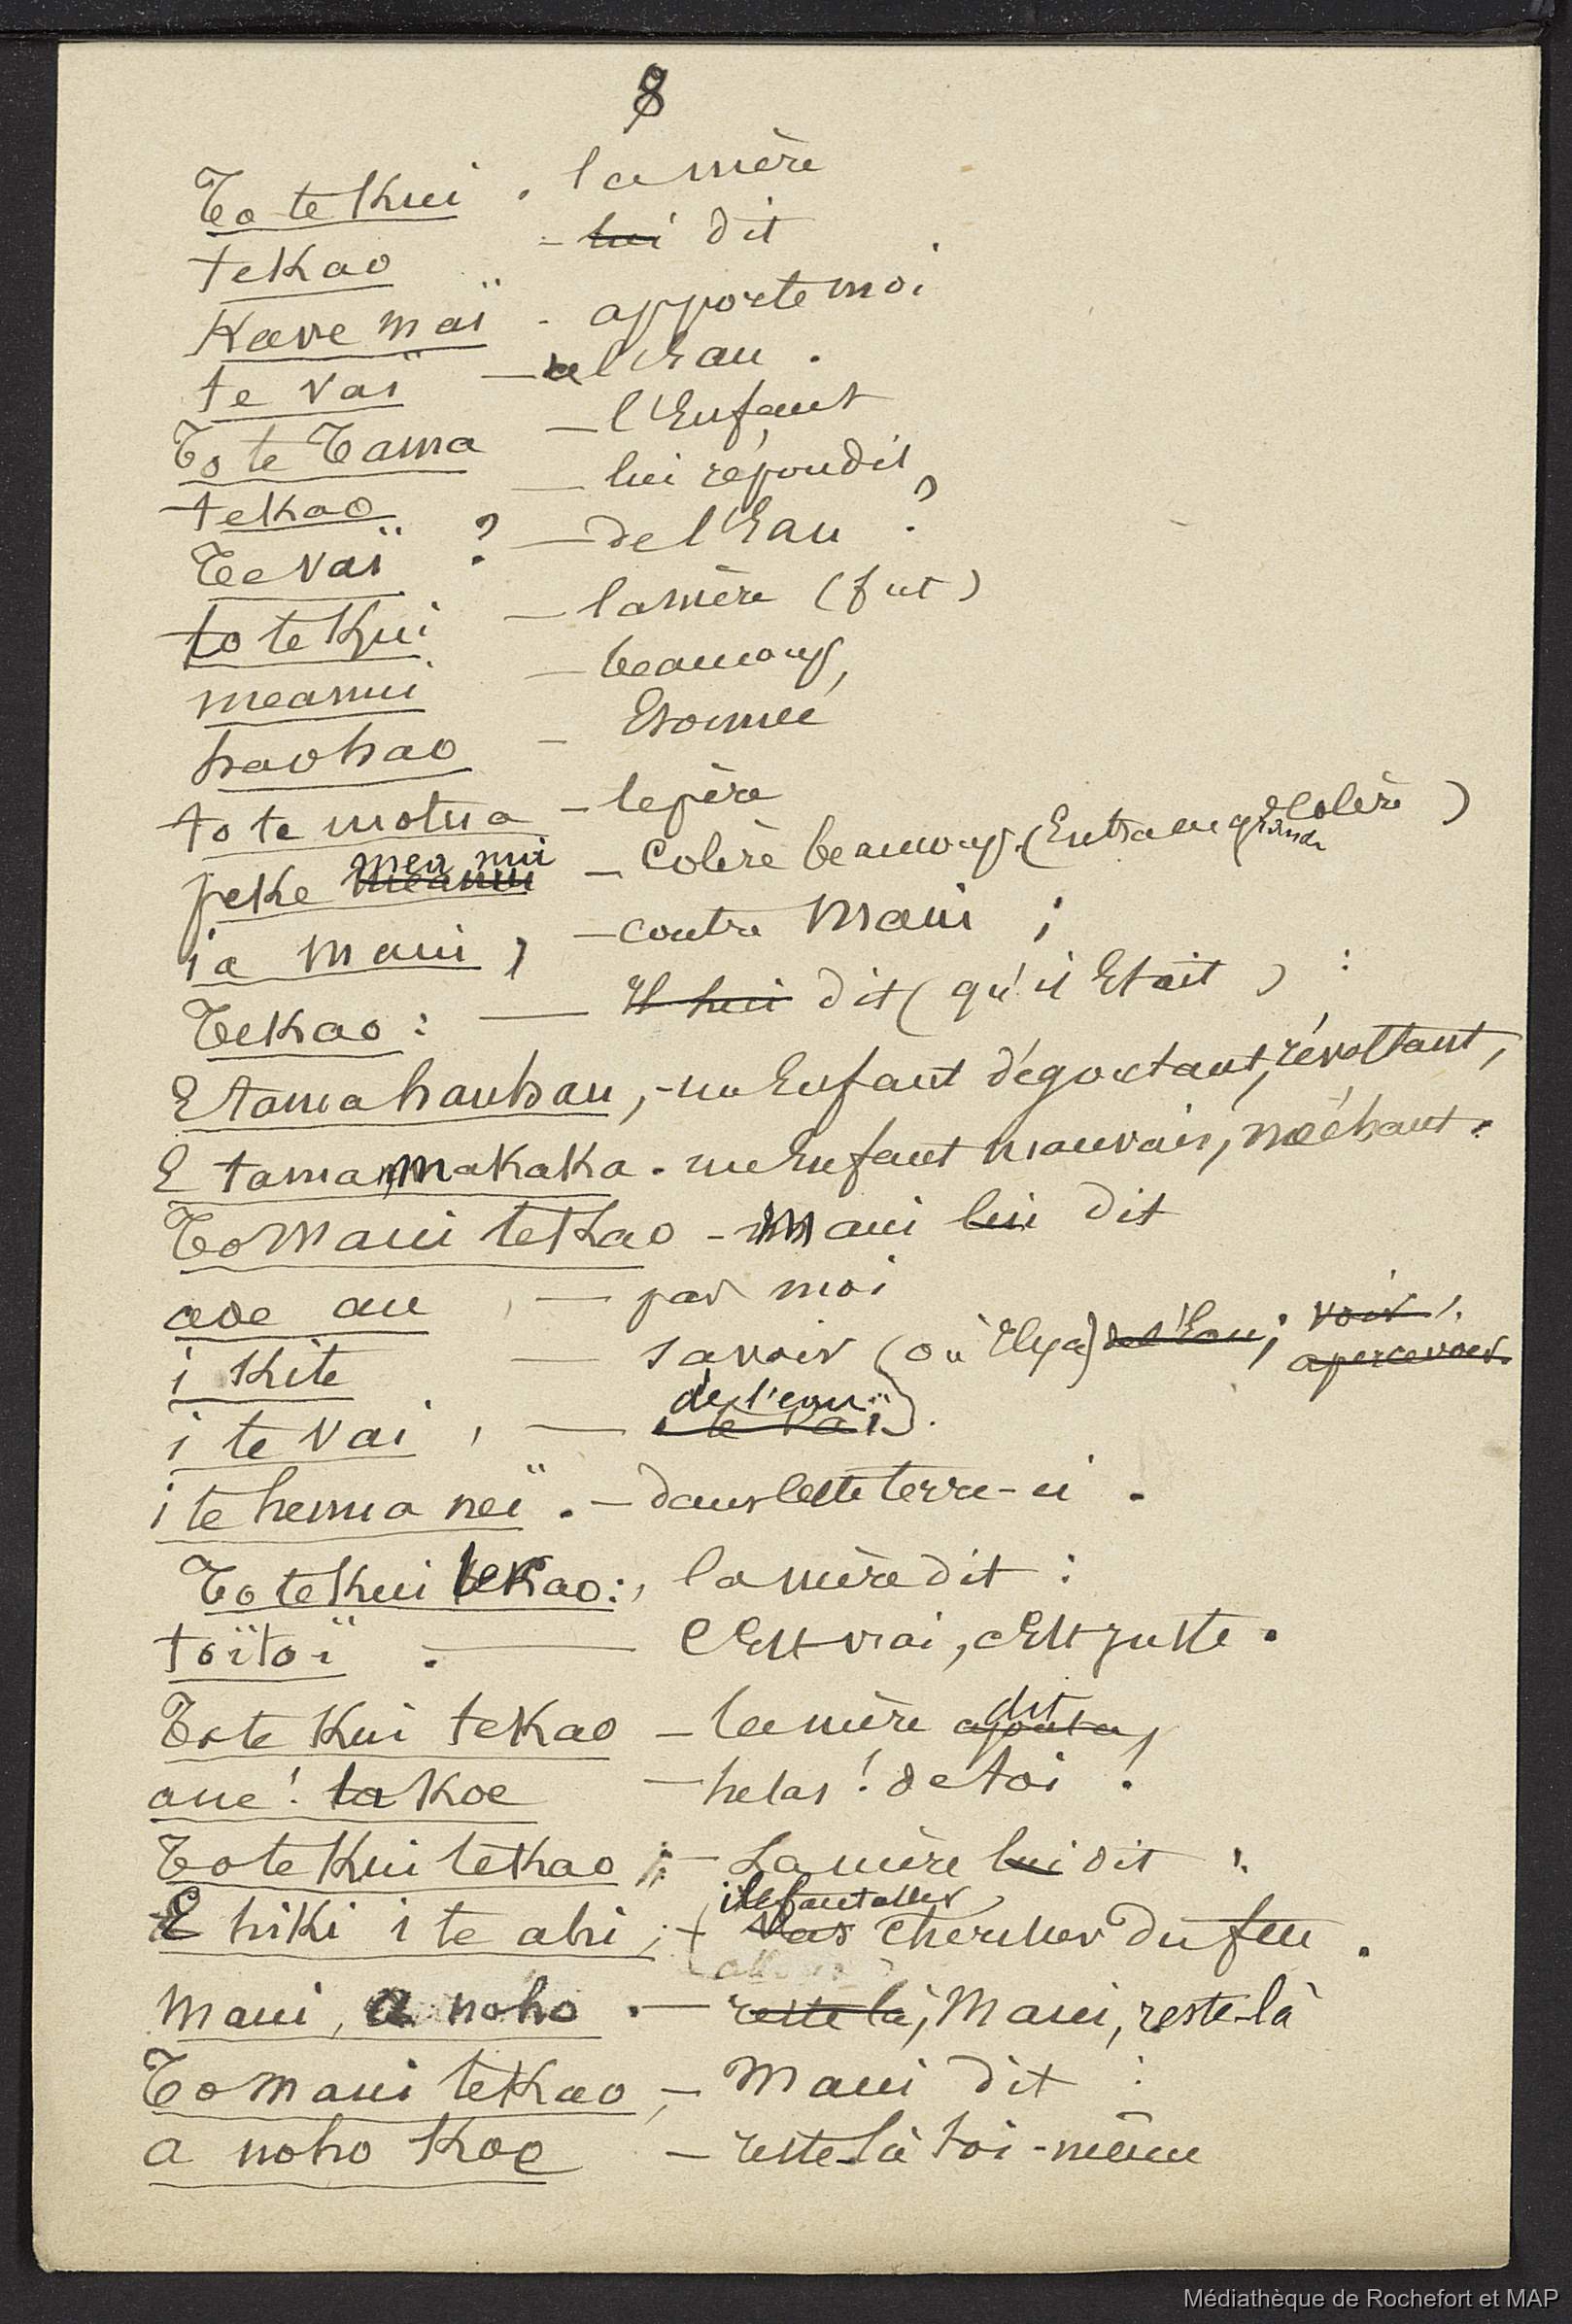 8
To te Kui . la mère
teKao - lui dit
Kave maï - apporte moi
te vaï — de l'Eau .
To te Tama — l'Enfant
teKao — lui répondit,
Te vaï ? — de l'Eau ?
to te Kui — la mère (fut)
meanui — beaucoup,
haohao — Etonnée
to te motua — le père
mea nui
peKe meanui — Colère beaucoup. (Entra en grande Colère)
ia Maui, — contre Maui ;
TeKao : — Il lui dit (qu'il Etait) :
E tama hauhau, - un Enfant dégoutant, révoltant,
E tama maKaKa . un Enfant mauvais, méchant.
To Maui teKao - Maui lui dit
aoe au , — pas moi
i Kite — savoir (où Il y a) de l'Eau ; voir,
apercevoir.
de l'eau
i te vai , — te vaï .
i te henua neï . — dans cette terre-ci .
To te Kui teKao : , la mère dit :
toïtoï . — C'Est vrai, c'Est juste .
dit
To te Kui teKao — la mère ajouta,
aue ! ta Koe — helas ! de toi !
To te Kui teKao ; — La mère lui dit :
il faut aller
E hiKi i te ahi ; + Vas chercher du feu .
Maui, a noho . — reste là, Maui, reste-là
To Maui teKao , — Maui dit :
a noho Koe — reste-là toi-même
Médiathèque de Rochefort et MAP